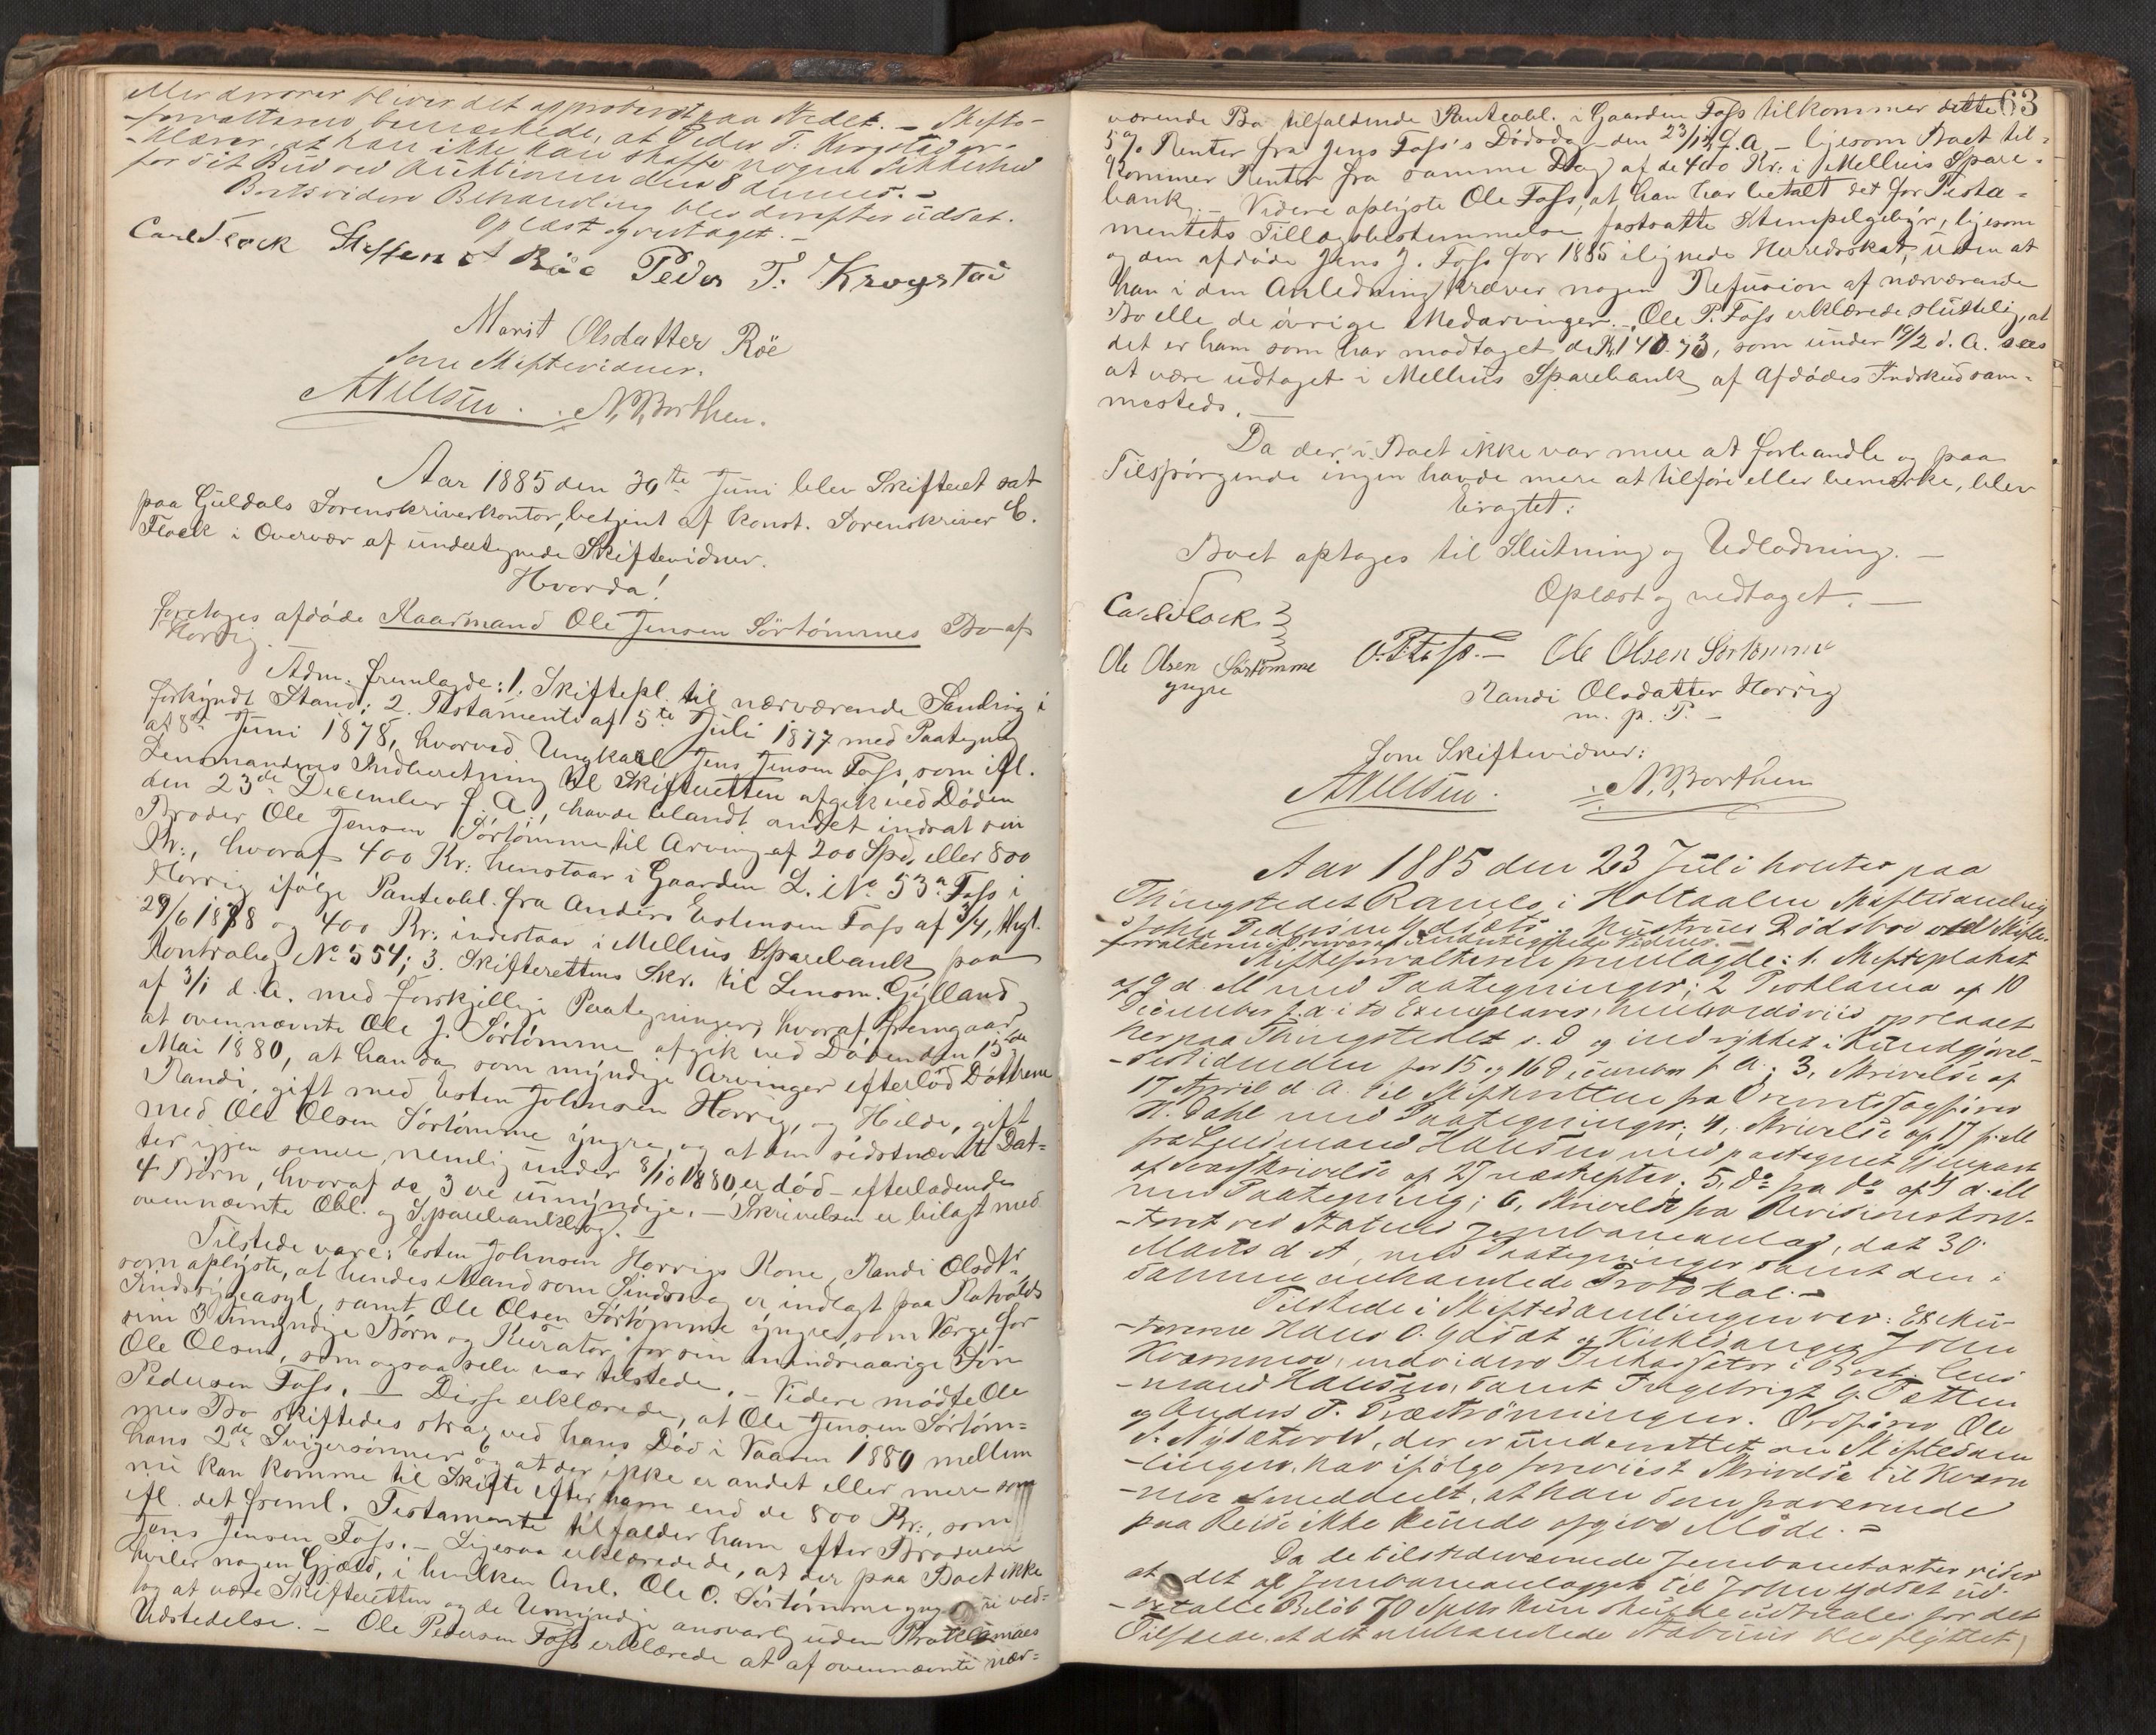 bliver det approberet paa Stedet. – Skifte-
forvalteren bemærkede, at Peder T. Krogstad er-
klærer, at han ikke kan skaffe nogen Sikkerhed
for sit Bud ved Auktionen den 8 dennes. –
Boets videre Behandling blev derefter udsat.
Oplæst og vedtaget. –
Carl Flock Steffen Röe Peder T. Krogstad
Marit Olsdatter Röe
Som Skiftevidner:
A Nilsen. N. Borthen.
Aar 1885 den 30te Juni blev Skifteret sat
paa Guldals Sorenskriverkontor, betjent af konst. Sorenskriver C.
Flock i Overvær af undertegnede Skiftevidner.
Hvorda!
foretoges afdøde Kaarmand Ole Jensen Sörtömmes Bo af
Horrig.
Adm. fremlagde: 1. Skiftepl. til nærværende Samling i
forkyndt Stand; 2. Testamente af 5te Juli 1877 med Paategning
af 8de Juni 1878, hvorved Ungkarl Jens Jensen Foss, som ifl.
Lensmandens Indberetning til Skifteretten afgik ved Døden
den 23de December f. A., havde blandt andet indsat sin
Broder Ole Jensen Sörtömme til Arving af 200 Spd. eller 800
Kr., hvoraf 400 Kr. henstaar i Gaarden L. No 53a Foss i
Horrig ifølge Panteobl. fra Anders Estensen Foss af 3/4, thgl.
29/6 1878 og 400 Kr. indestaar i Melhus Sparebank paa
Kontrabog No 554; 3. Skifterettens Skr. til Lensm. Gylland
af 3/1 d. A. med forskjellige Paategninger, hvoraf fremgaar,
at ovennævnte Ole J. Sörtömme afgik ved Døden den 15de
Mai 1880, at han da som myndige Arvinger efterlod Døttrene
Randi, gift med Esten Johnsen Horrig, og Hilde, gift
med Ole Olsen Sörtömme yngre, og at den sidstnævnte Dat-
ter igjen senere, nemlig under 8/10 1880, er død – efterladende
4 Børn, hvoraf de 3 ere umyndige. – Skrivelsen er bilagt med
ovennævnte Obl. og Sparebankbog. –
Tilstede vare: Esten Johnsen Horrigs Kone, Randi Olsdtr,
som oplyste, at hendes Mand som Sindssvag er indlagt paa Rotvolds
Sindssygeasyl, samt Ole Olsen Sörtömme yngre, som Værge for
sine 3 umyndige Børn og Kurator for sin mindreaarige Søn
Ole Olsen, som ogsaa selv var tilstede. – Videre mødte Ole
Pedersen Foss. – Disse erklærede, at Ole Jensen Sörtöm-
mes Bo skiftedes strax ved hans Død i Vaaren 1880 mellem
hans 2de Svigersønner og at der ikke er andet eller mere som
nu kan komme til Skifte efter ham end de 800 Kr., som
ifl. det freml. Testamente tilfalder ham efter Broderen
Jens Jensen Foss. – Ligesaa erklærede de, at der paa Boet ikke
hviler nogen Gjæld, i hvilken Anl. Ole O. Sörtömme yngre ved-
tog at være Skifteretten og de Umyndige ansvarlig uden Proklamaes
Udstedelse. – Ole Pedersen Foss erklærede at af ovennævnte nær-
63
værende Bo tilfaldende Panteobl. i Gaarden Foss tilkommer dette
5% Renter fra Jens Foss's Dødsdag – den 23/12 f. A. – ligesom Boet til-
kommer Renter fra samme Dag af de 400 Kr. i Melhus Spare-
bank. – Videre oplyste Ole Foss, at han har betalt det for Testa-
mentets Tillægsbestemmelse fastsatte Stempelgebyr, ligesom
og den afdøde Jens J. Foss for 1885 ilignede Herredsskat, uden at
han i den Anledning kræver nogen Refusion af nærværende
Bo elle de övrige Medarvinger. – Ole P. Foss erklærede sluttelig, at
det er ham som har modtaget de Kr. 140.73, som under 19/2 d. A. sees
at være udtaget i Melhus Sparebank af Afdødes Indskud sam-
mesteds. –
Da der i Boet ikke var mere at forhandle og paa
Tilspørgende ingen havde mere at tilføre eller bemærke, blev
Eragtet:
Boet optages til Slutning og Udlodning. –
Oplæst og vedtaget. –
Carl Flock
Ole Olsen Sörtömme O. P. Foss. – Ole Olsen Sörtömme
yngre
Randi Olsdatter Horrig
m. p. P. –
Som Skiftevidner:
A Nilsen. N. Borthen
Aar 1885 den 23 Juli holdtes paa
Thingstedet Ramlo i Holtaalen Skiftesamling
i John Pedersen Ydsets og Hustrues Dødsbo ved Skifte-
forvalteren i Overvær af undertegnede Vidner. –
Skifteforvalteren fremlagde: 1. Skifteplakat
af 9 d. M med Paategninger; 2 Proklama af 10
December f. a. i to Exemplarer, henholdsvis oplæst
her paa Thingstedet s. D og indrykket i Kundgjørel-
sestidenden for 15 og 16 December f. A.; 3. Skrivelse af
17 April d. A. til Skifteretten fra Overretssagfører
K. Dahl med Paategninger; 4. Skrivelse af 17 f. M
fra Lensmand Hansen med paategnet Gjenpart
af Svarskrivelse af 27 næstefter; 5, do fra do af 4 d. M
med Paategning; 6, Skrivelse fra Revisionskon-
toret ved Statens Jernbaneanlæg, dat 30
Marts d. A, med Paategninger samt den i
samme omhandlede Protokol. –
Tilstede i Skiftesamlingen var: Exeku-
torerne Hans O. Ydset og Kirkesanger John
Kvammen, endvidere Inkassator i Boet Lens-
mand Hansen, samt Ingebrigt G. Tætten
og Anders P. Præströnningen. Ordfører Ole
der er underrettet om Skiftesam-
lingen, har ifølge foreviist Skrivelse til Kvam-
men meddeelt, at han som fraværende
paa Reise ikke kunde opgive Møde. –
Da de tilstedeværende Jernbanekarter viser
at det af Jernbaneanlægget til John Ydset ud-
betalte Beløb 70 Spdlr kun skulde udbetales for det
Tilfælde, at det omhandlede Stabuur blev flyttet,